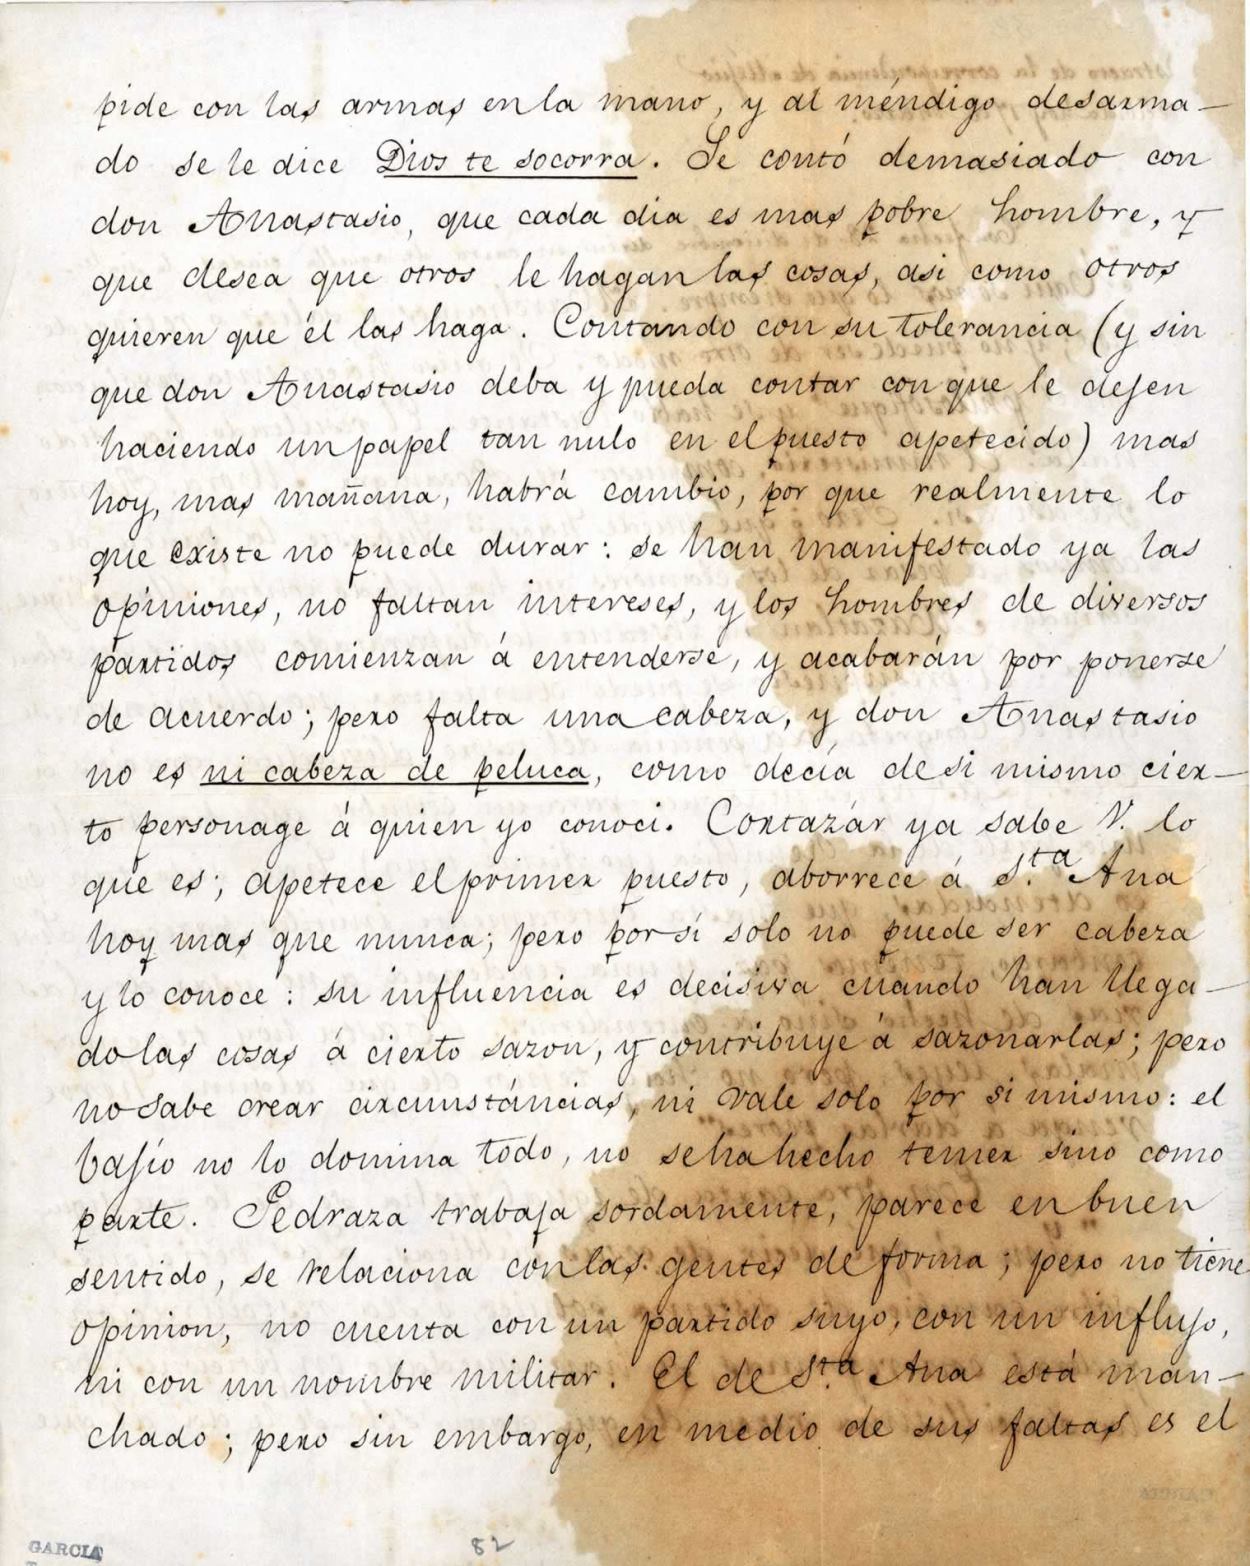 pide con las armas en la mano, y al méndigo desarma-
do se le dice Dios te socorra. Se contó demasiado con
don Anastasio, que cada dia es mas pobre hombre, y
que desea que otros le hagan las cosas, asi como otros
quieren que él las haga. Contando con su tolerancia (y sin
que don Anastasio deba y pueda contar con que le dejen
haciendo un papel tan nulo en el puesto apetecido) mas
hoy, mas mañana, habrá cambio, por que realmente lo
que existe no puede durar: se han manifestado ya las
opiniones, no faltan intereses, y los hombres de diversos
partidos comienzan á entenderse, y acabarán por ponerse
de acuerdo; pero falta una cabeza, y don Anastasio
no es ni cabeza de peluca, como decía de si mismo cier-
to personage á quien yo conoci. Cortazár ya sabe V. lo
que es; apetece el primer puesto, aborrece á S.ta Ana
hoy mas que nunca; pero por sí solo no puede ser cabeza
y lo conoce: su influencia es decisiva cuando han llega-
do las cosas á cierto sazon, y contribuye á sazonarlas; pero
no sabe crear circunstáncias, ni vale solo por si mismo: el
bajío no lo domina todo, no se ha hecho temer sino como
parte. Pedraza trabaja sordamente, parece en buen
sentido, se relaciona con las gentes de forma; pero no tiene
opinion, no cuenta con un partido suyo, con un influjo,
ni con un nombre militar. El de S.ta Ana está man-
chado; pero sin embargo, en medio de sus faltas es el
82
GARCIA